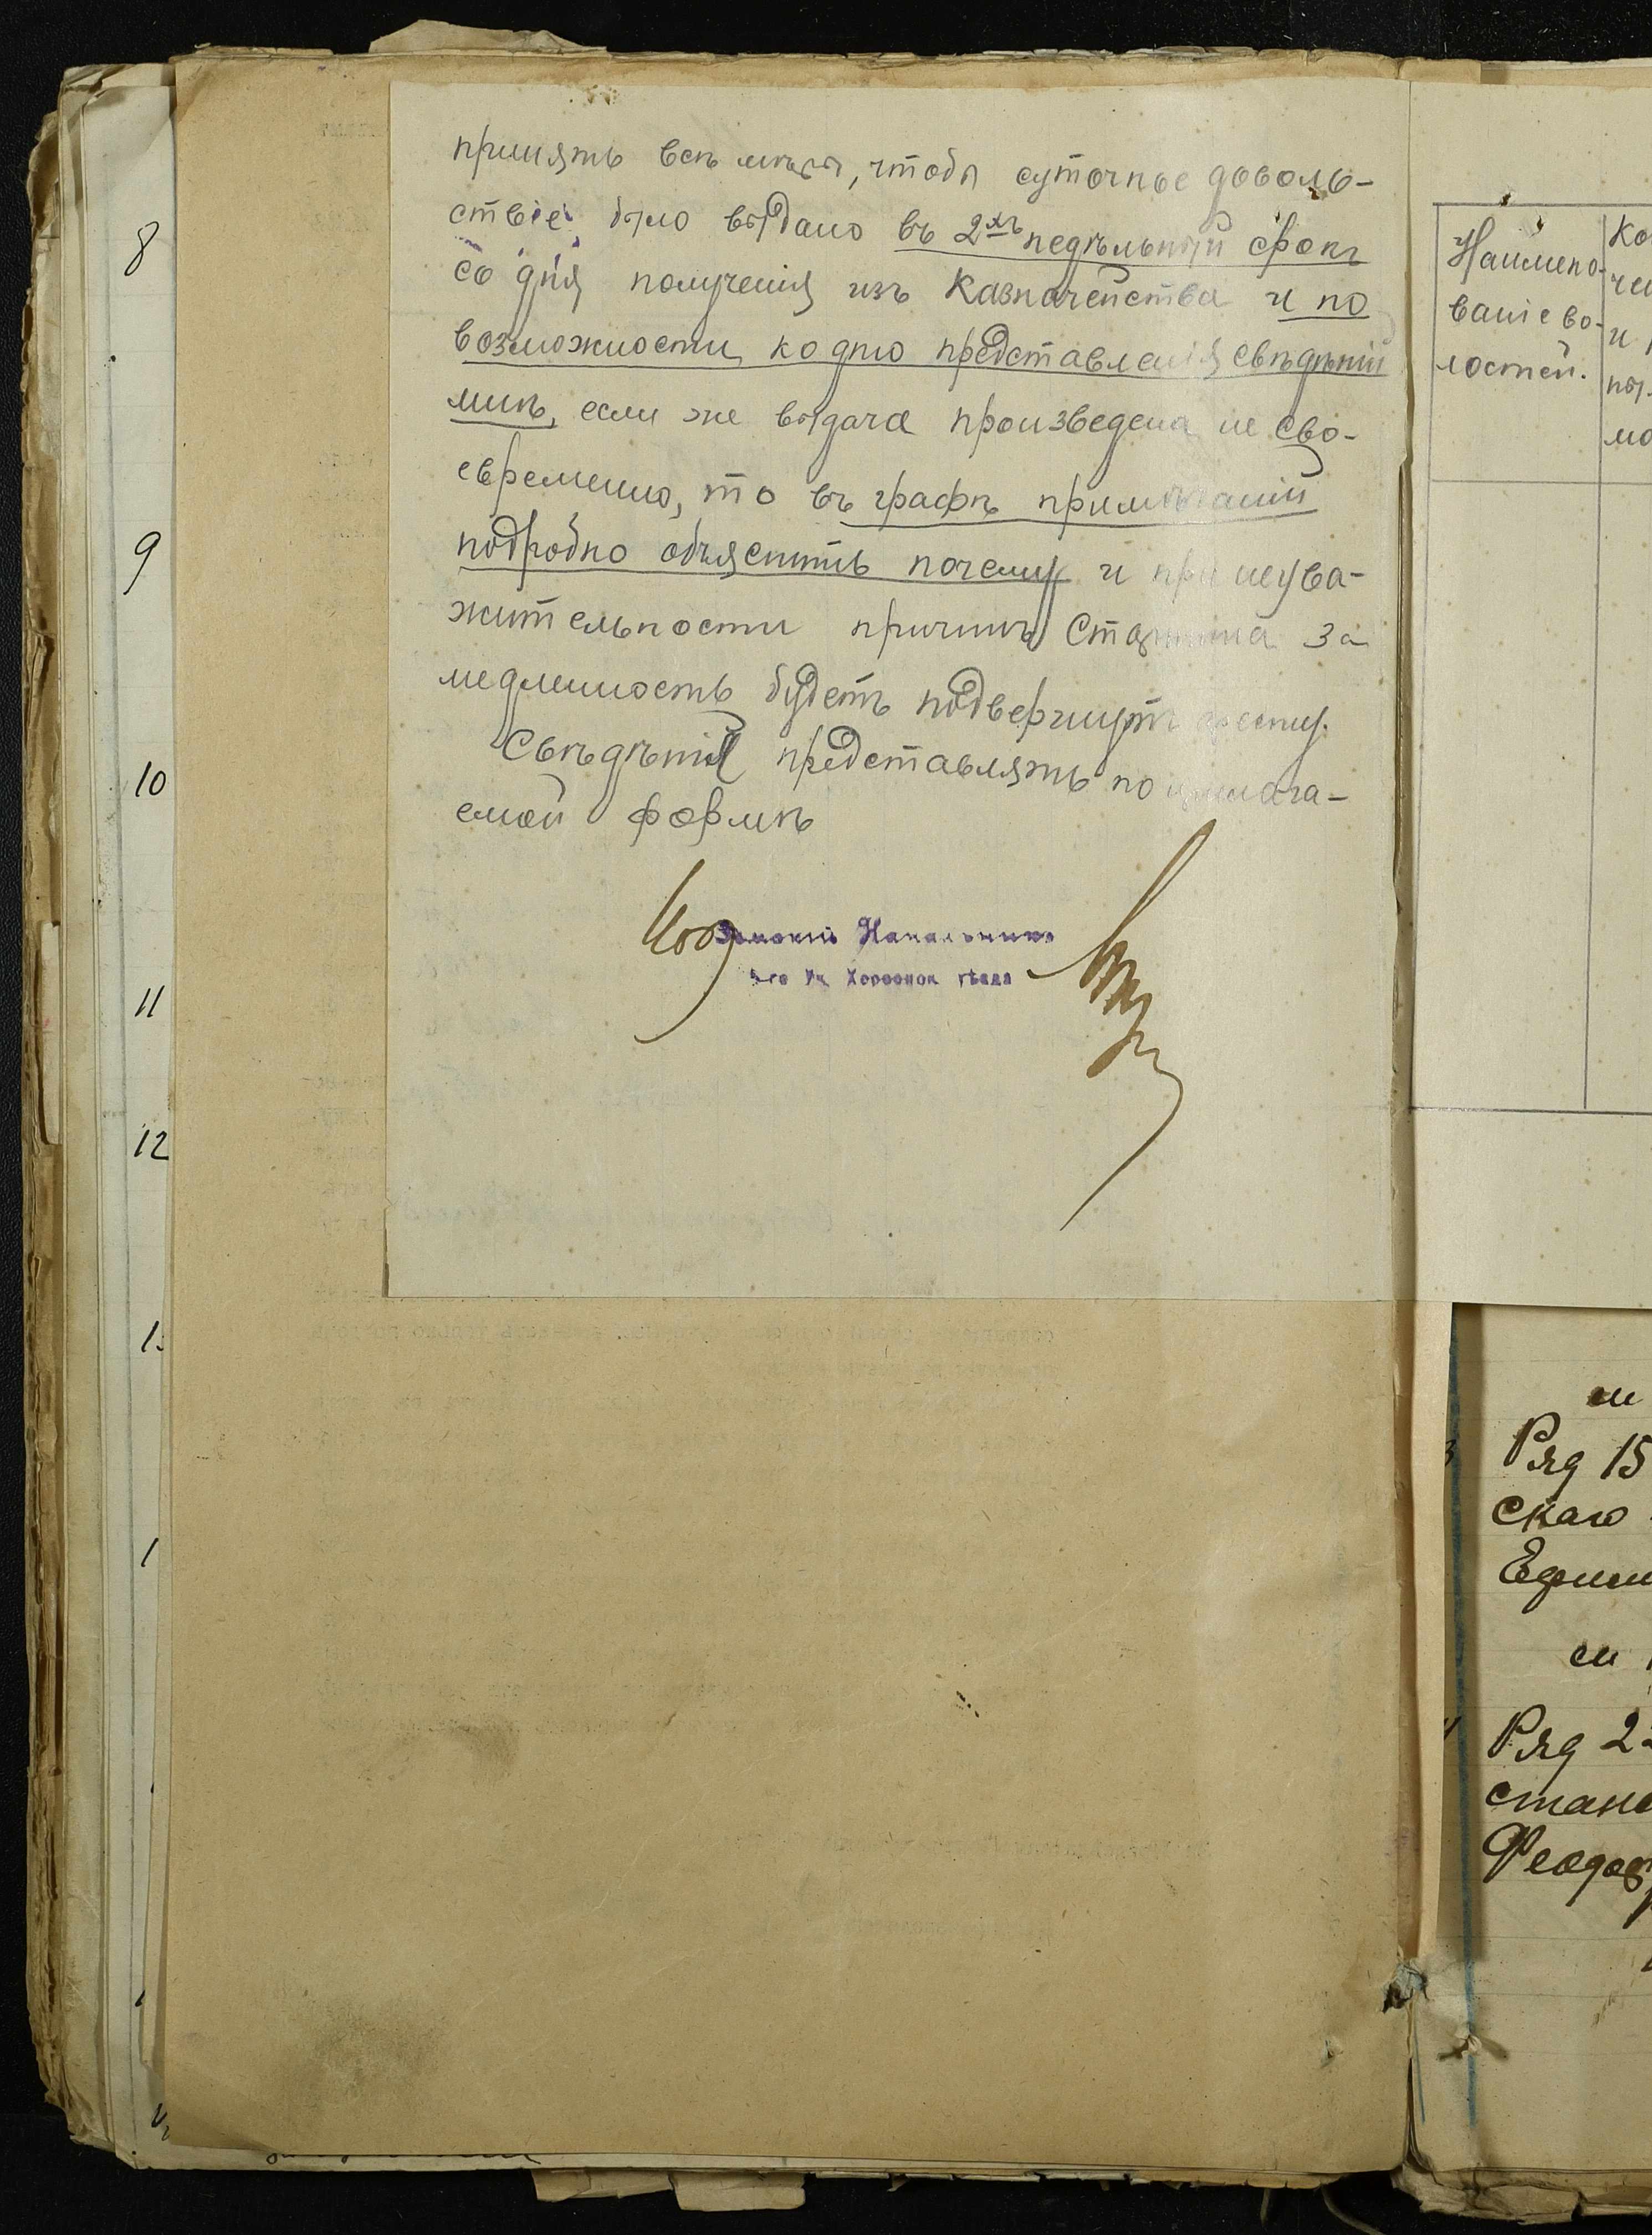 принять всѣ мѣры, чтобы суточное доволь-
ствіе было выдано въ 2хъ недѣльный срокъ
со дня полученія изъ Казначейства и по
возможности ко дню представленія свѣдѣній
мнѣ, если же выдача произведена не сво-
евременно, то въ графѣ примѣчаній
подробно объяснить почему и при неува-
жительности причинъ Старшина за
медленность будетъ подвергнутъ аресту.
Свѣдѣнія представлять по прилага-
емой формѣ
Земскій Начальникъ
Уч. Херсонск. уѣзда
8
9
10
11
12
Наимено-
ваніе во-
лостей.
Ряд 15
скаго
Ряд 2